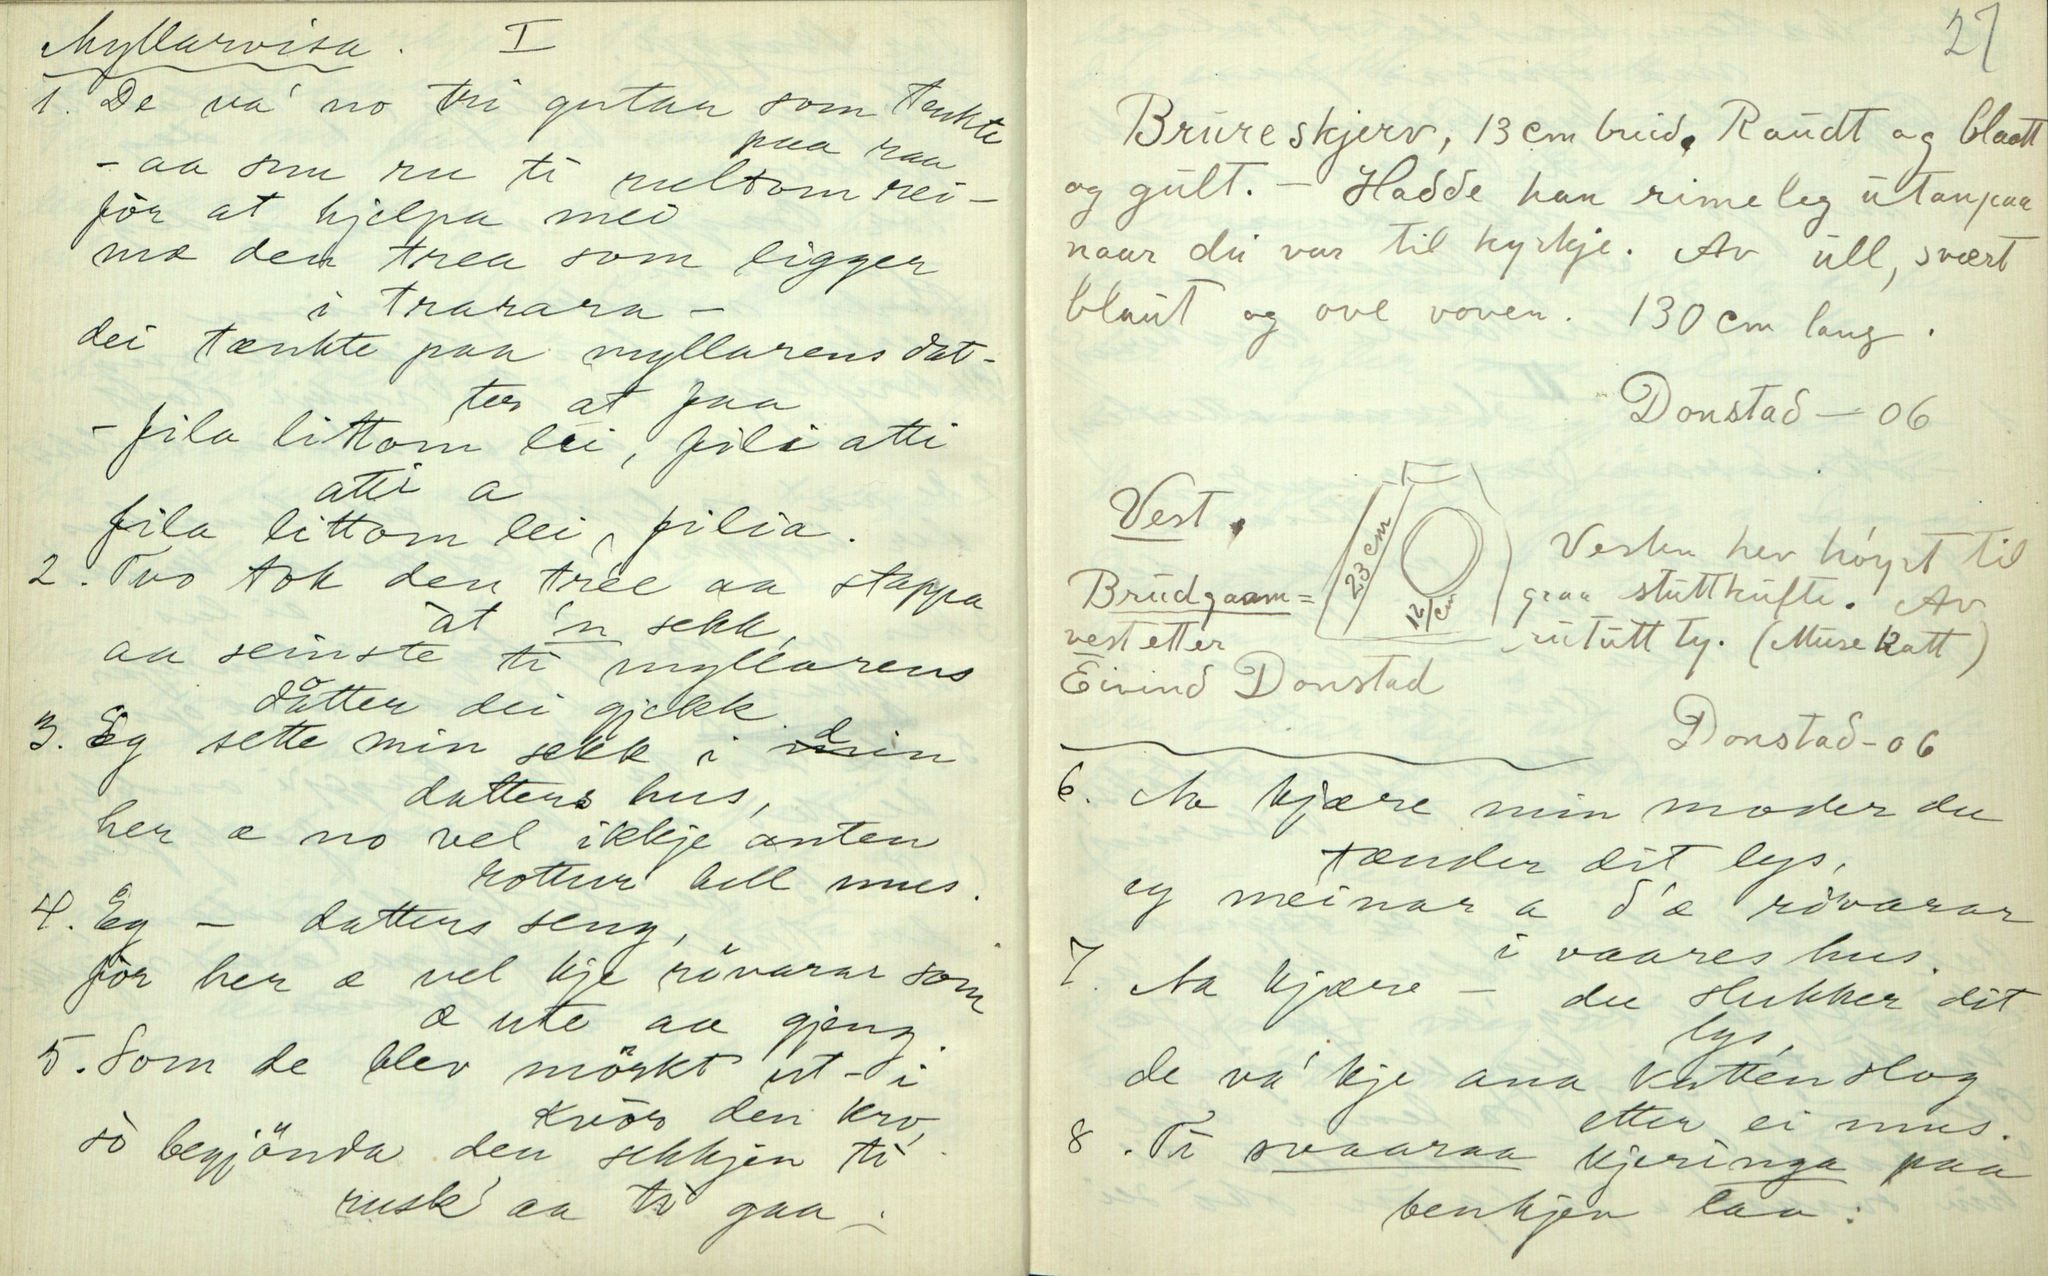 Myllarvisa. I
1. De va' no tri gutar som tenkte
paa raa
- aa snu ru ti rultom rei -
för at hjelpa mei
mæ den trea som ligger
i trarara -
dei tænkte paa myllarens dat-
ter at faa
- fila littom lei, fili atti
atti a
fila littom lei, filia.
2. Tvo tok den tree aa stappa
åt 'n sekk,
aa seinste ti myllarens
dåtter dei gjekk
3. Eg sette min sekk i din
datters hus,
her æ no vel ikkje anten
rottur hell mus.
4. Eg - datters seng,
för her æ vel kje rövarar som
æ ute aa gjeng.
5. Som de blev mörkt ut-i
kvör den kro,
sö begjönda den sekkjen ti
rusk' aa ti gaa.
27
Brureskjerv, 13 cm breid. Raudt og blaatt
og gult. - Hadde han rimeleg utanpaa
naar du var til kyrkje. Av ull, svært
blaut og ove voven. 130 cm lang.
Donstad - 06
Vest.
23 cm
12 cm
Vesten hev høyrt til
graa stuttkufte. Av
rututt ty. (Musekatt)
Brudgaam=
vest etter
Eivind Donstad
Donstad - 06
6. Aa kjære min moder du
tænder dit lys,
eg meinar a d'æ rövarar
i vaares hus.
7. Aa kjære - du slukker dit
lys,
de va' kje ana katten slog
etter ei mus.
8. Ti svaaraa kjeringa paa
benkjen laa: